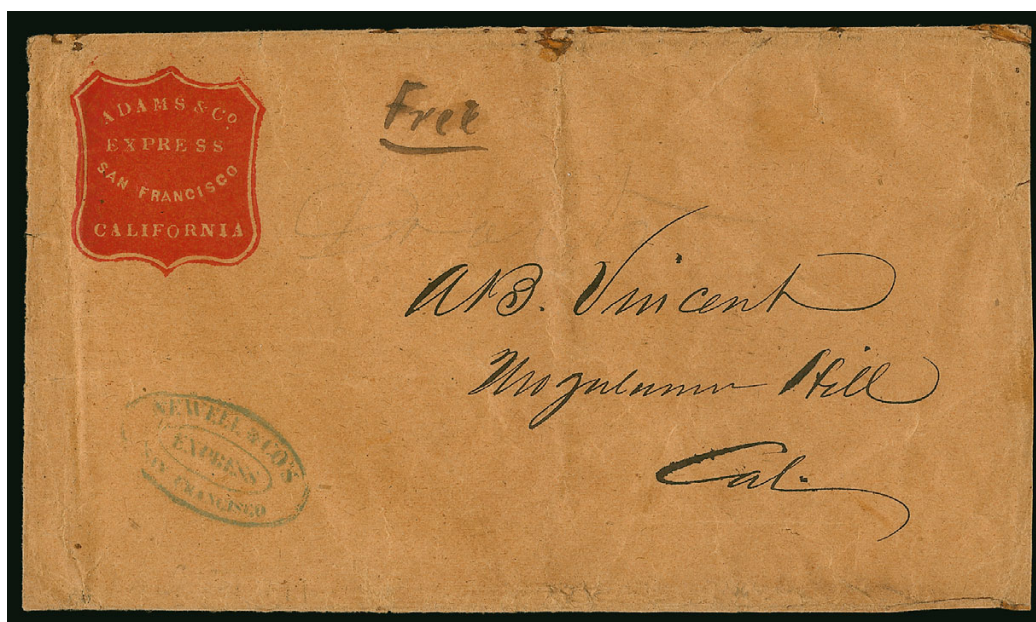 ADAMS & Co.
EXPRESS
SAN FRANCISCO
CALIFORNIA
Free
A B. Vincent
Mogulumne Hill
Cal.
NEWELL & CO'S
EXPRESS
SAN FRANCISCO